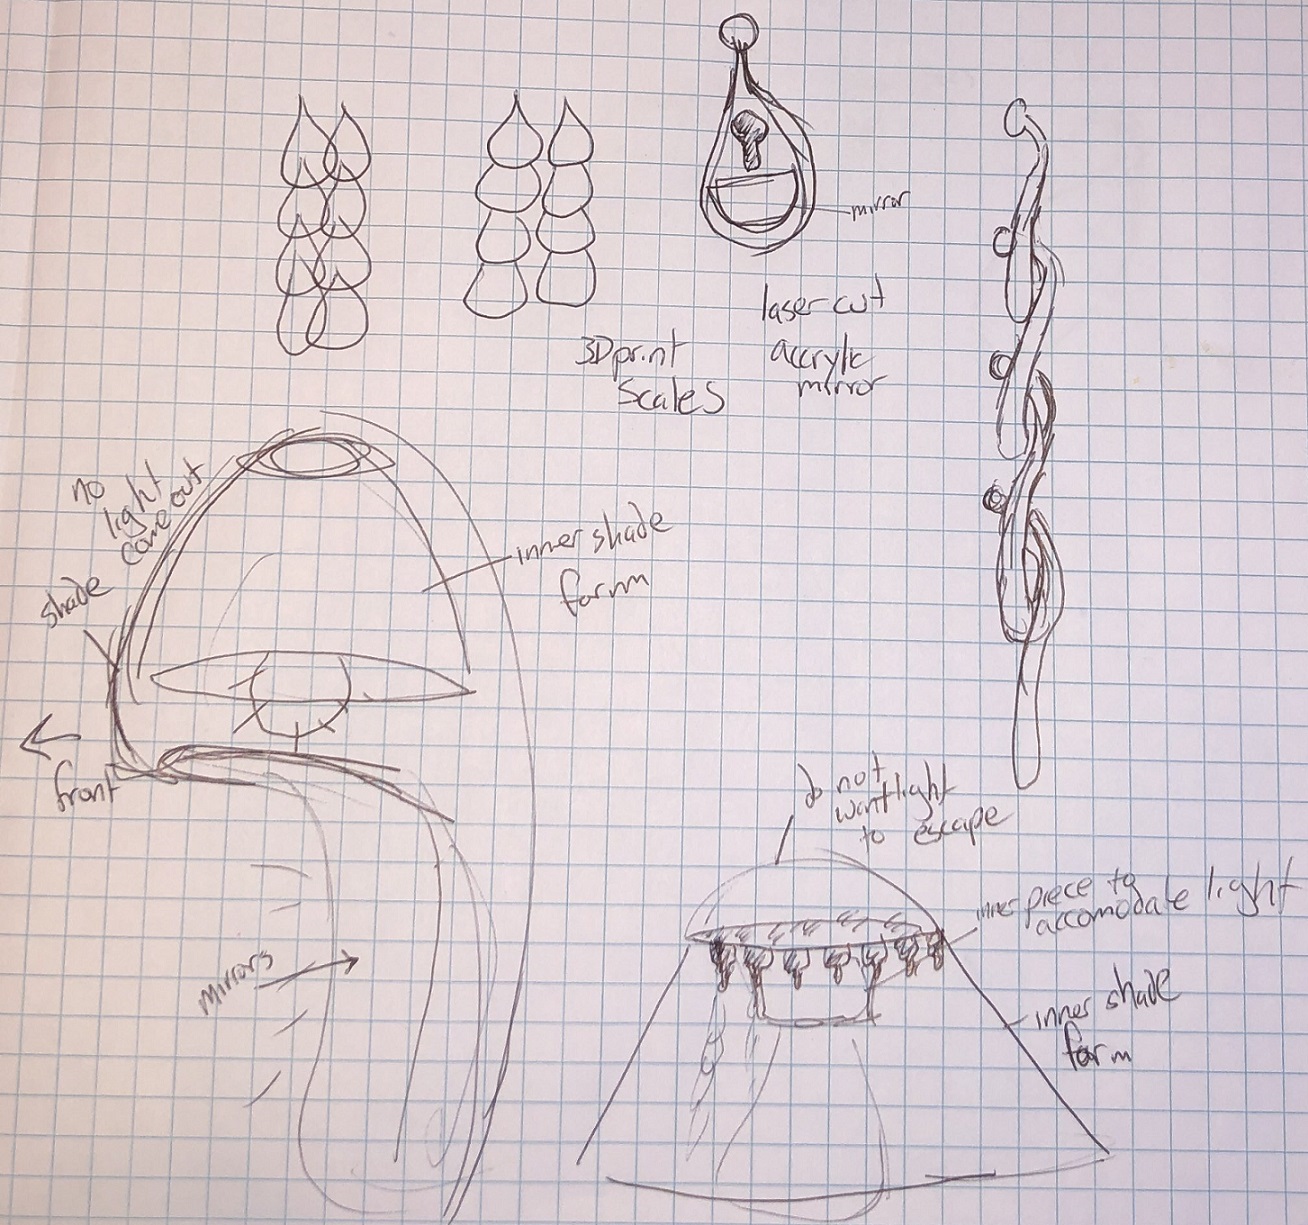 mirror
laser cut
accrylic
mirror
3D print
Scales
no
light
come out
shade
inner shade
form
front
mirrors
do not
want light
to escape
inner piece to
accomodate light
inner shade
form